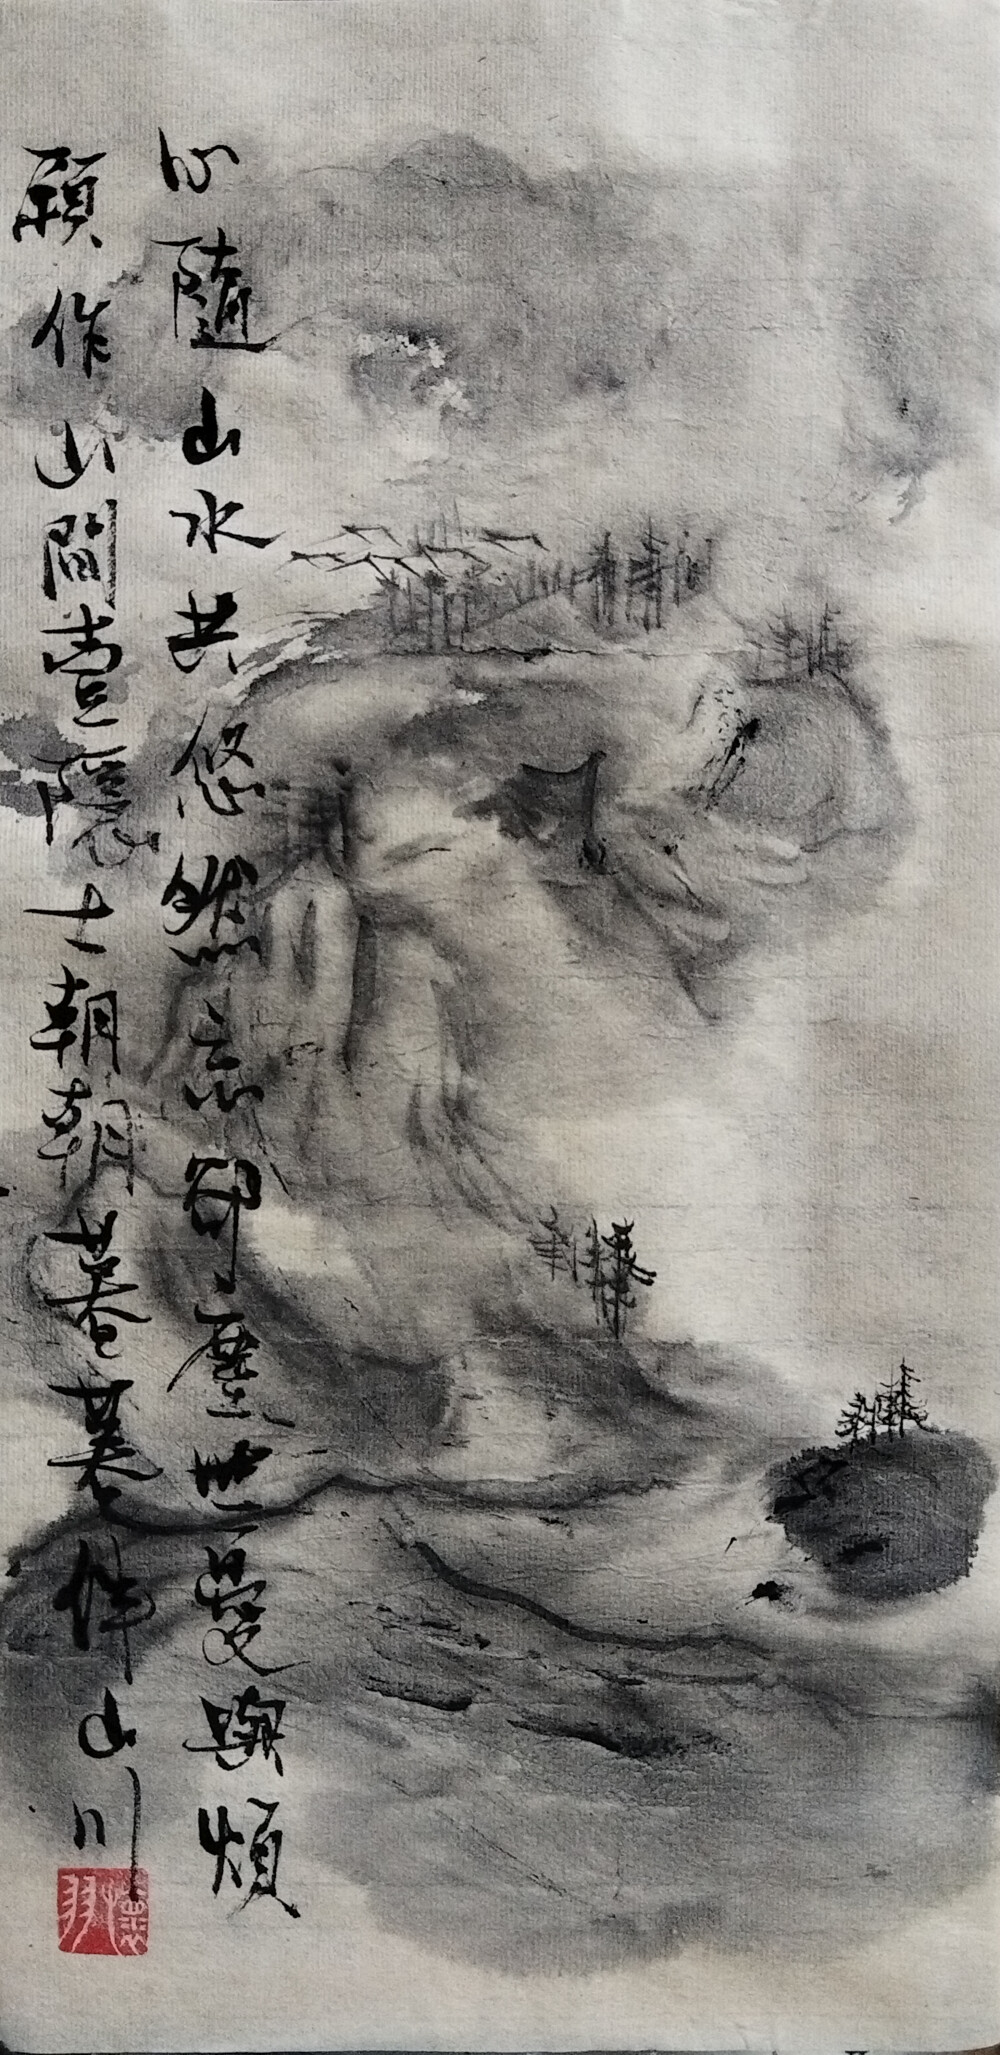 心随山水共悠然忘卻塵世憂與煩
願作山間壹隱士朝朝暮暮伴山川